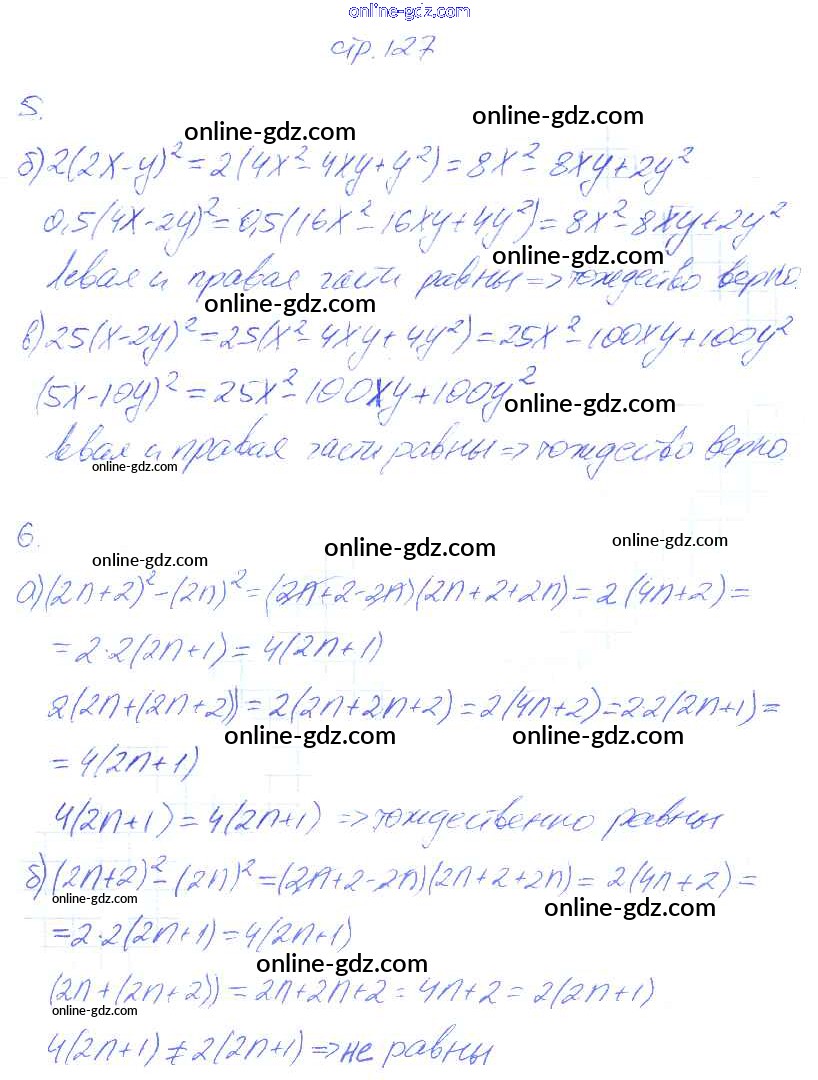 online-gdz.com
стр. 127
5.
online-gdz.com
online-gdz.com
б) 2(2x-y)² = 2(4x²-4xy+y²) = 8x²-8xy+2y²
0,5(4x-2y)² = 0,5(16x²-16xy+4y²) = 8x²-8xy+2y²
online-gdz.com
левая и правая части равны => тождество верно.
online-gdz.com
в) 25(x-2y)² = 25(x²-4xy+4y²) = 25x²-100xy+100y²
(5x-10y)² = 25x²-100xy+100y²
online-gdz.com
левая и правая части равны => тождество верно.
online-gdz.com
6.
online-gdz.com
online-gdz.com
online-gdz.com
а) (2n+2)²-(2n)² = (2n+2-2n)(2n+2+2n) = 2(4n+2) =
= 2·2(2n+1) = 4(2n+1)
2(2n+(2n+2)) = 2(2n+2n+2) = 2(4n+2) = 2·2(2n+1) =
online-gdz.com
online-gdz.com
= 4(2n+1)
4(2n+1) = 4(2n+1) => тождественно равны
б) (2n+2)²-(2n)² = (2n+2-2n)(2n+2+2n) = 2(4n+2) =
online-gdz.com
online-gdz.com
= 2·2(2n+1) = 4(2n+1)
online-gdz.com
(2n+(2n+2)) = 2n+2n+2 = 4n+2 = 2(2n+1)
online-gdz.com
4(2n+1) ≠ 2(2n+1) => не равны